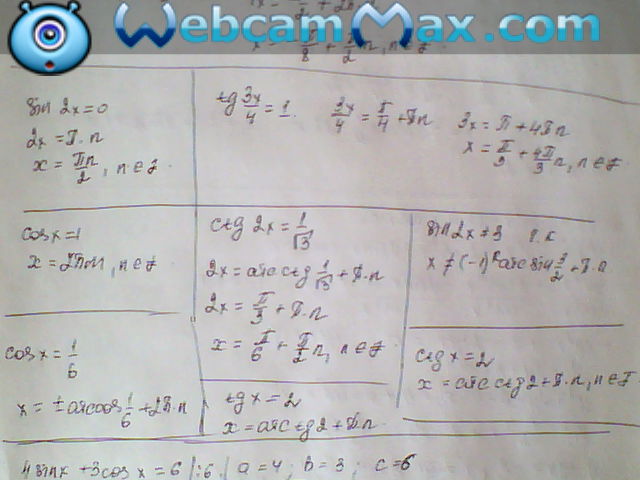 WebcamMax.com
sin 2x = 0
2x = π·n
x = πn/2, n ∈ Z
tg 3x/4 = 1
3x/4 = π/4 + πn
3x = π + 4πn
x = π/3 + 4π/3 n, n ∈ Z
cos x = 1
x = 2πn, n ∈ Z
ctg 2x = 1/√3
2x = arcctg 1/√3 + π·n
2x = π/3 + π·n
x = π/6 + π/2 n, n ∈ Z
sin 2x ≠ 3
cos x = 1/6
x = ± arccos 1/6 + 2π·n
tg x = 2
x = arctg 2 + π·n
ctg x = 2
x = arcctg 2 + π·n, n ∈ Z
4 sin x + 3 cos x = 6 | :6 | a = 4; b = 3; c = 6